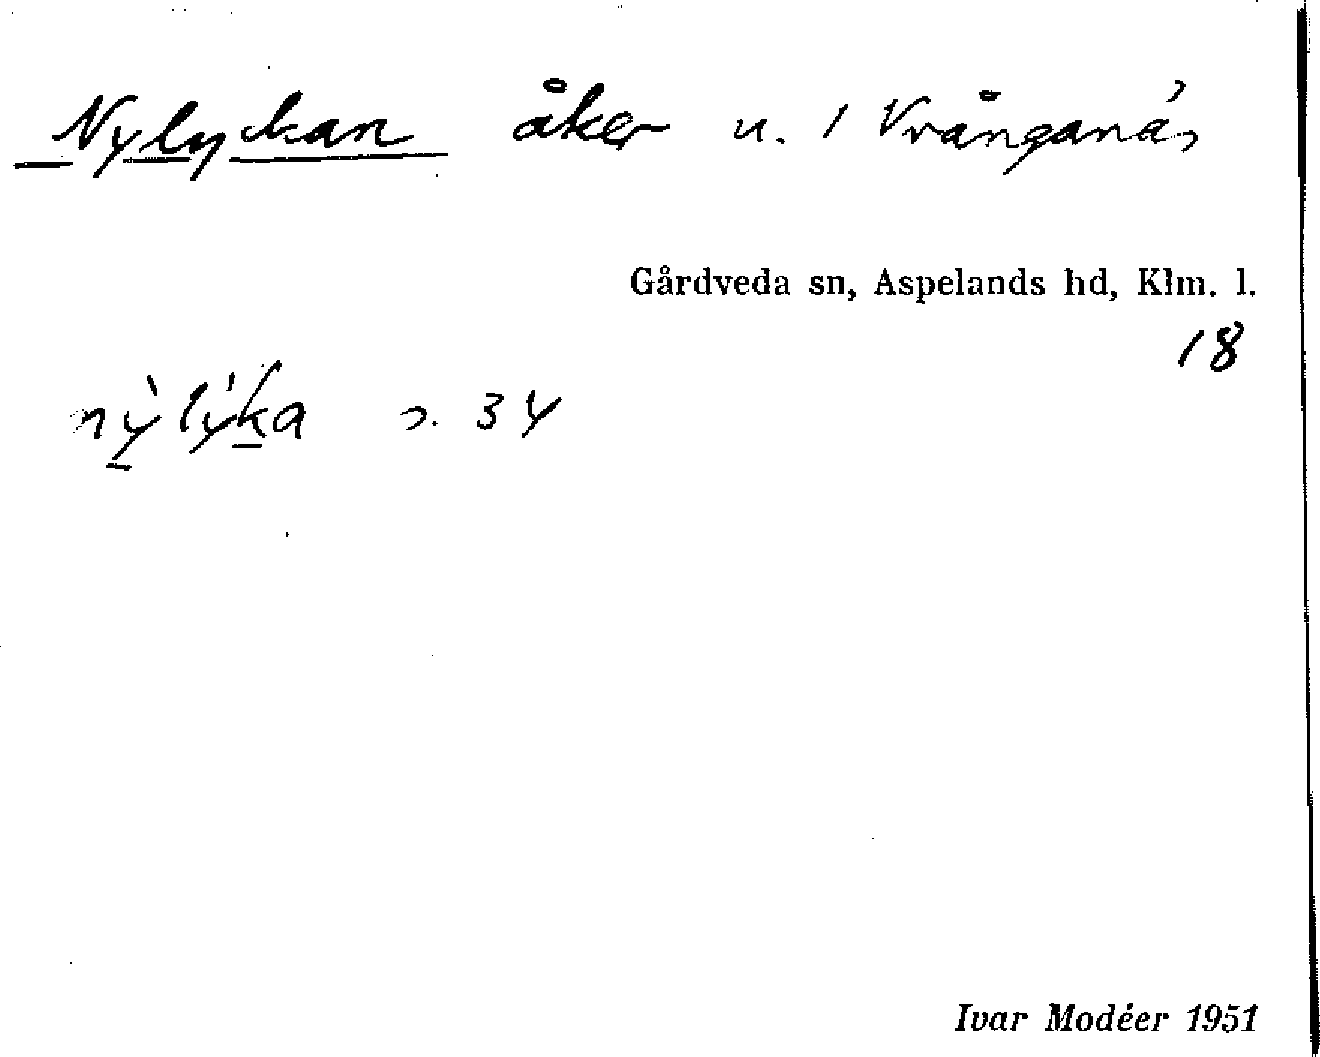 Nylyckan åker u. 1 Vrånganäs
Gårdveda sn, Aspelands hd, Klm. l.
18
nỳlýka s. 34
Ivar Modéer 1951